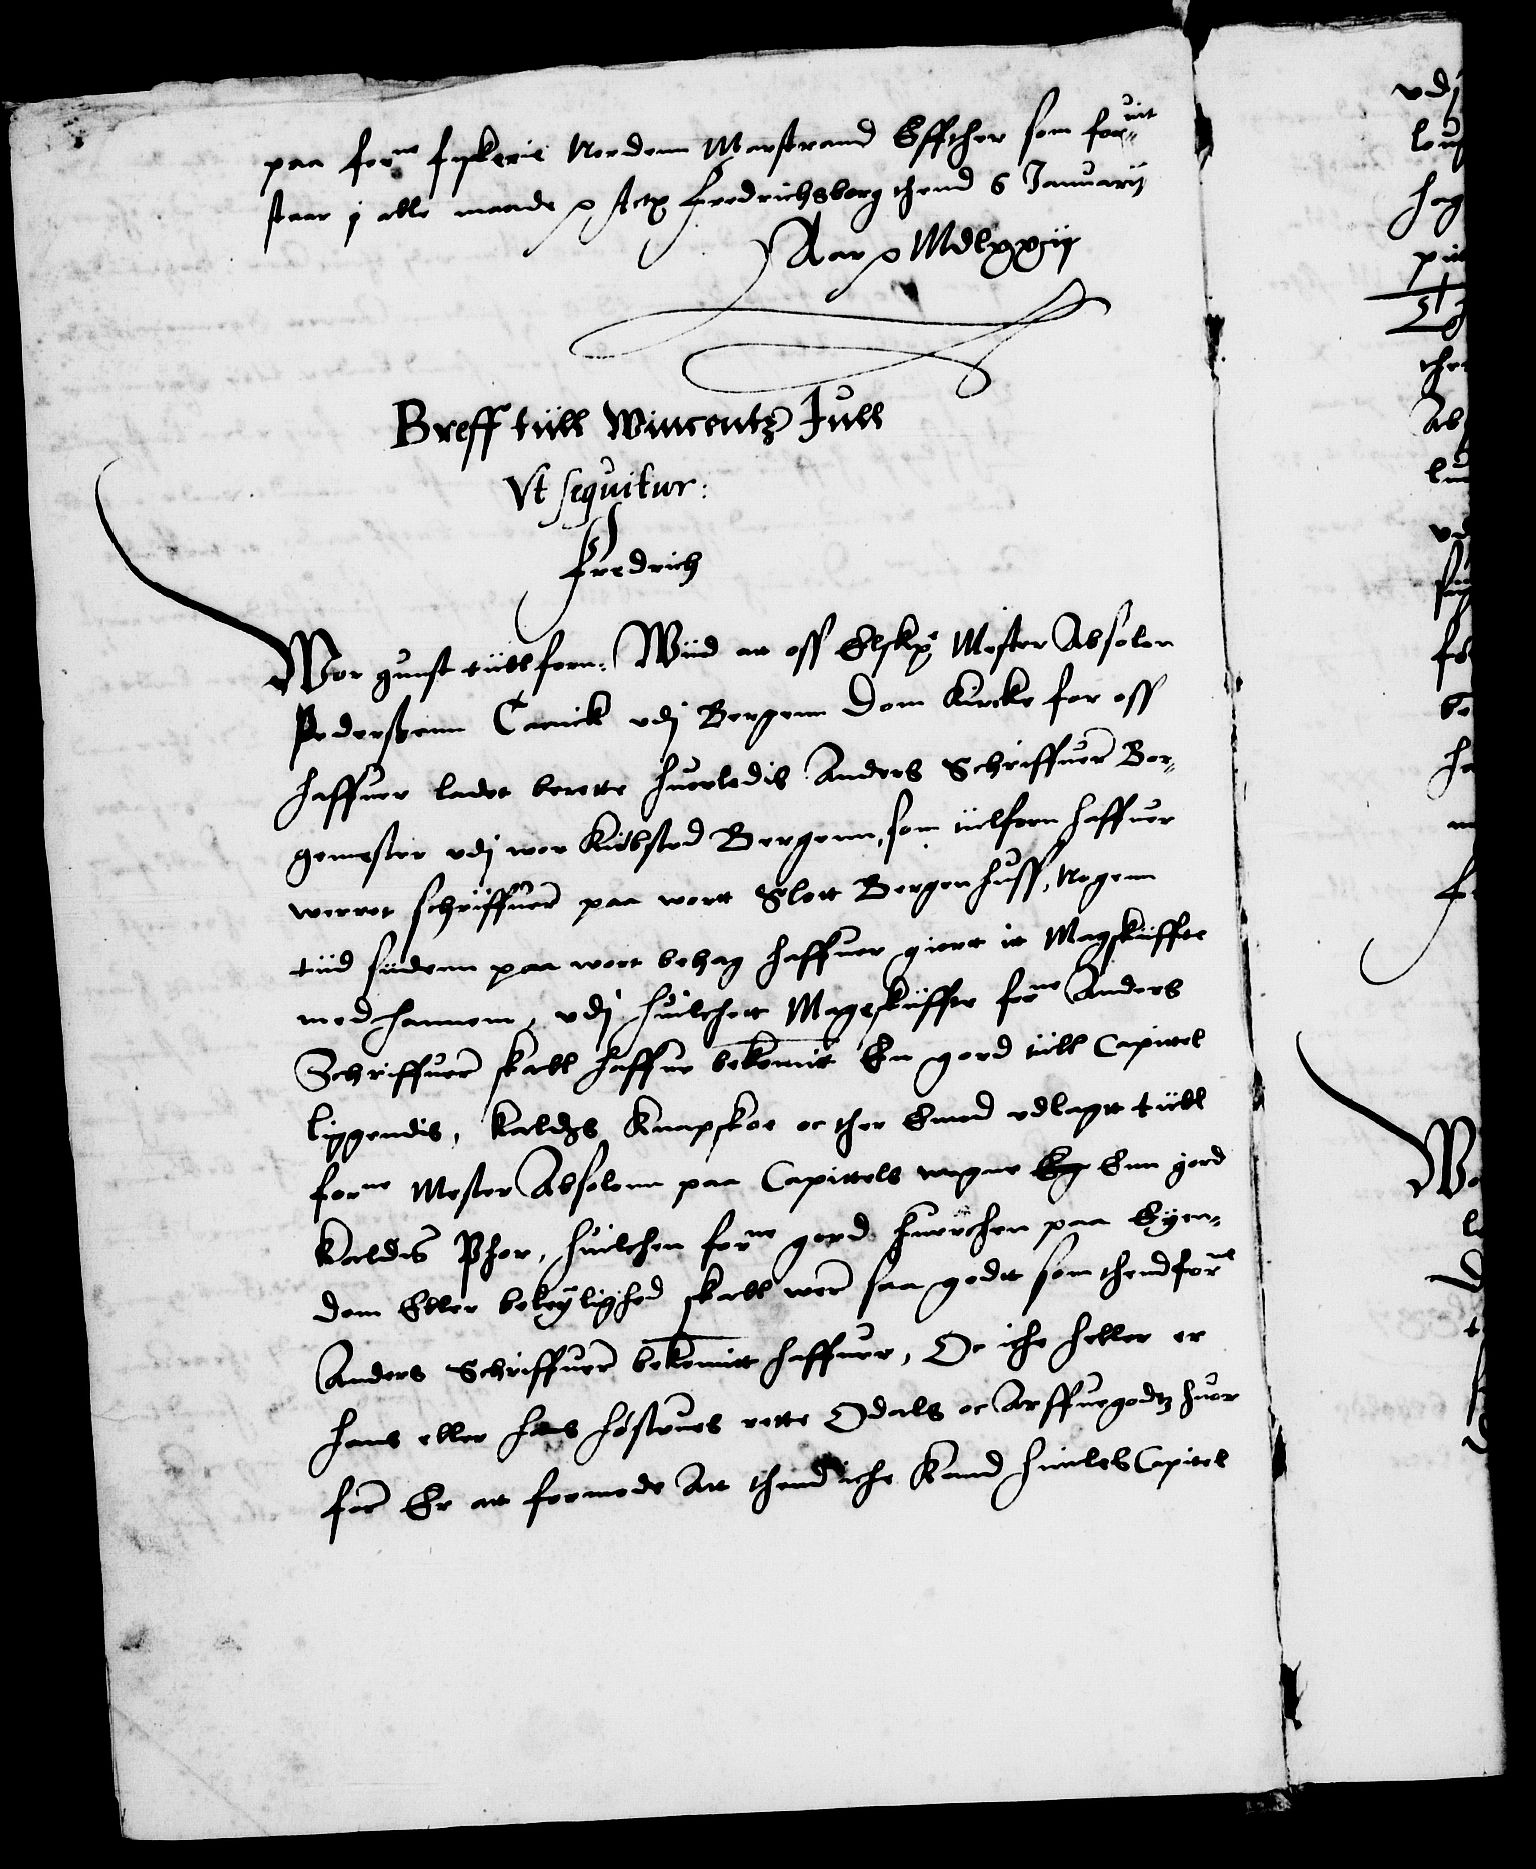 paa forne fyskerie Nordenn Marstrand Effther som for-uit
staar j alle maade Actz Fredrichsborg thend 6 Januarij
Aar MDlxxij
Breff tiill Wincentz Jull
Vt sequitur:
Fredrich
Wor gunst tiillforn: Wiid at oss Elskz Mester Absolon
Pederszenn Canick vdj Bergenn Dom Kircke for oss
haffuer ladet berette huorledis Anders Schriffuer Bor-
gemester vdj wor Kiibsted Bergenn, som tiilforn haffuer
werret schriiffuer paa wortt Slott Bergenhuss, Nogenn
tiid siidenn paa wort behag haffuer giortt it Magskiiffte
med hannem, vdj huilchett Mageskiiffte forne Anders
Schriffuer skall haffue bekomitt En gord tiill Capittel
liggendis, Kaldis Knapskoe oc ther Emod vdlagtt tiill
forne Mester Absolonn paa Capittels wegne Eg Enn gord
Kaldis Phor, huilchen forne gord huerchen paa Eyen-
dom Eller beleylighed skall wer saa godt som thend forne
Anders Schriffuer bekomitt haffuer, Oc iche heller er
hans eller hans høstrues rette Odals oc Arffuegodtz huor
for Er att formode Att thend iche Kand huiles Capitel
vdj